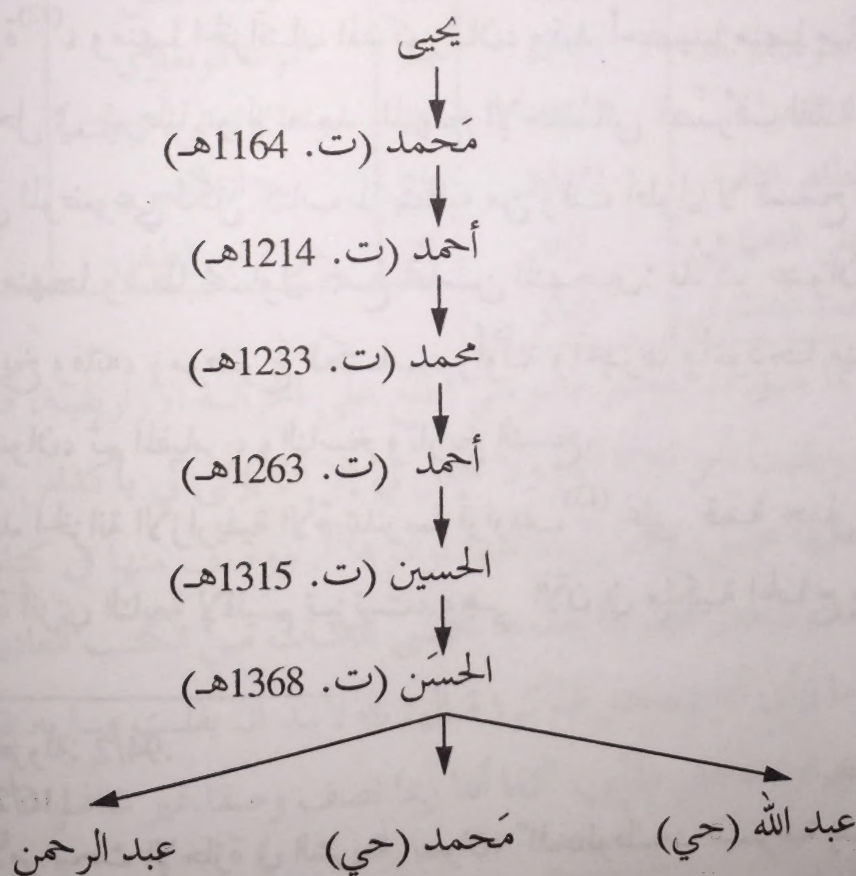 يحيى
مَحمد (ت. 1164هـ)
أحمد (ت. 1214هـ)
محمد (ت. 1233هـ)
أحمد (ت. 1263هـ)
الحسين (ت. 1315هـ)
الحسَن (ت. 1368هـ)
عبد الله (حي) مَحمد (حي) عبد الرحمن